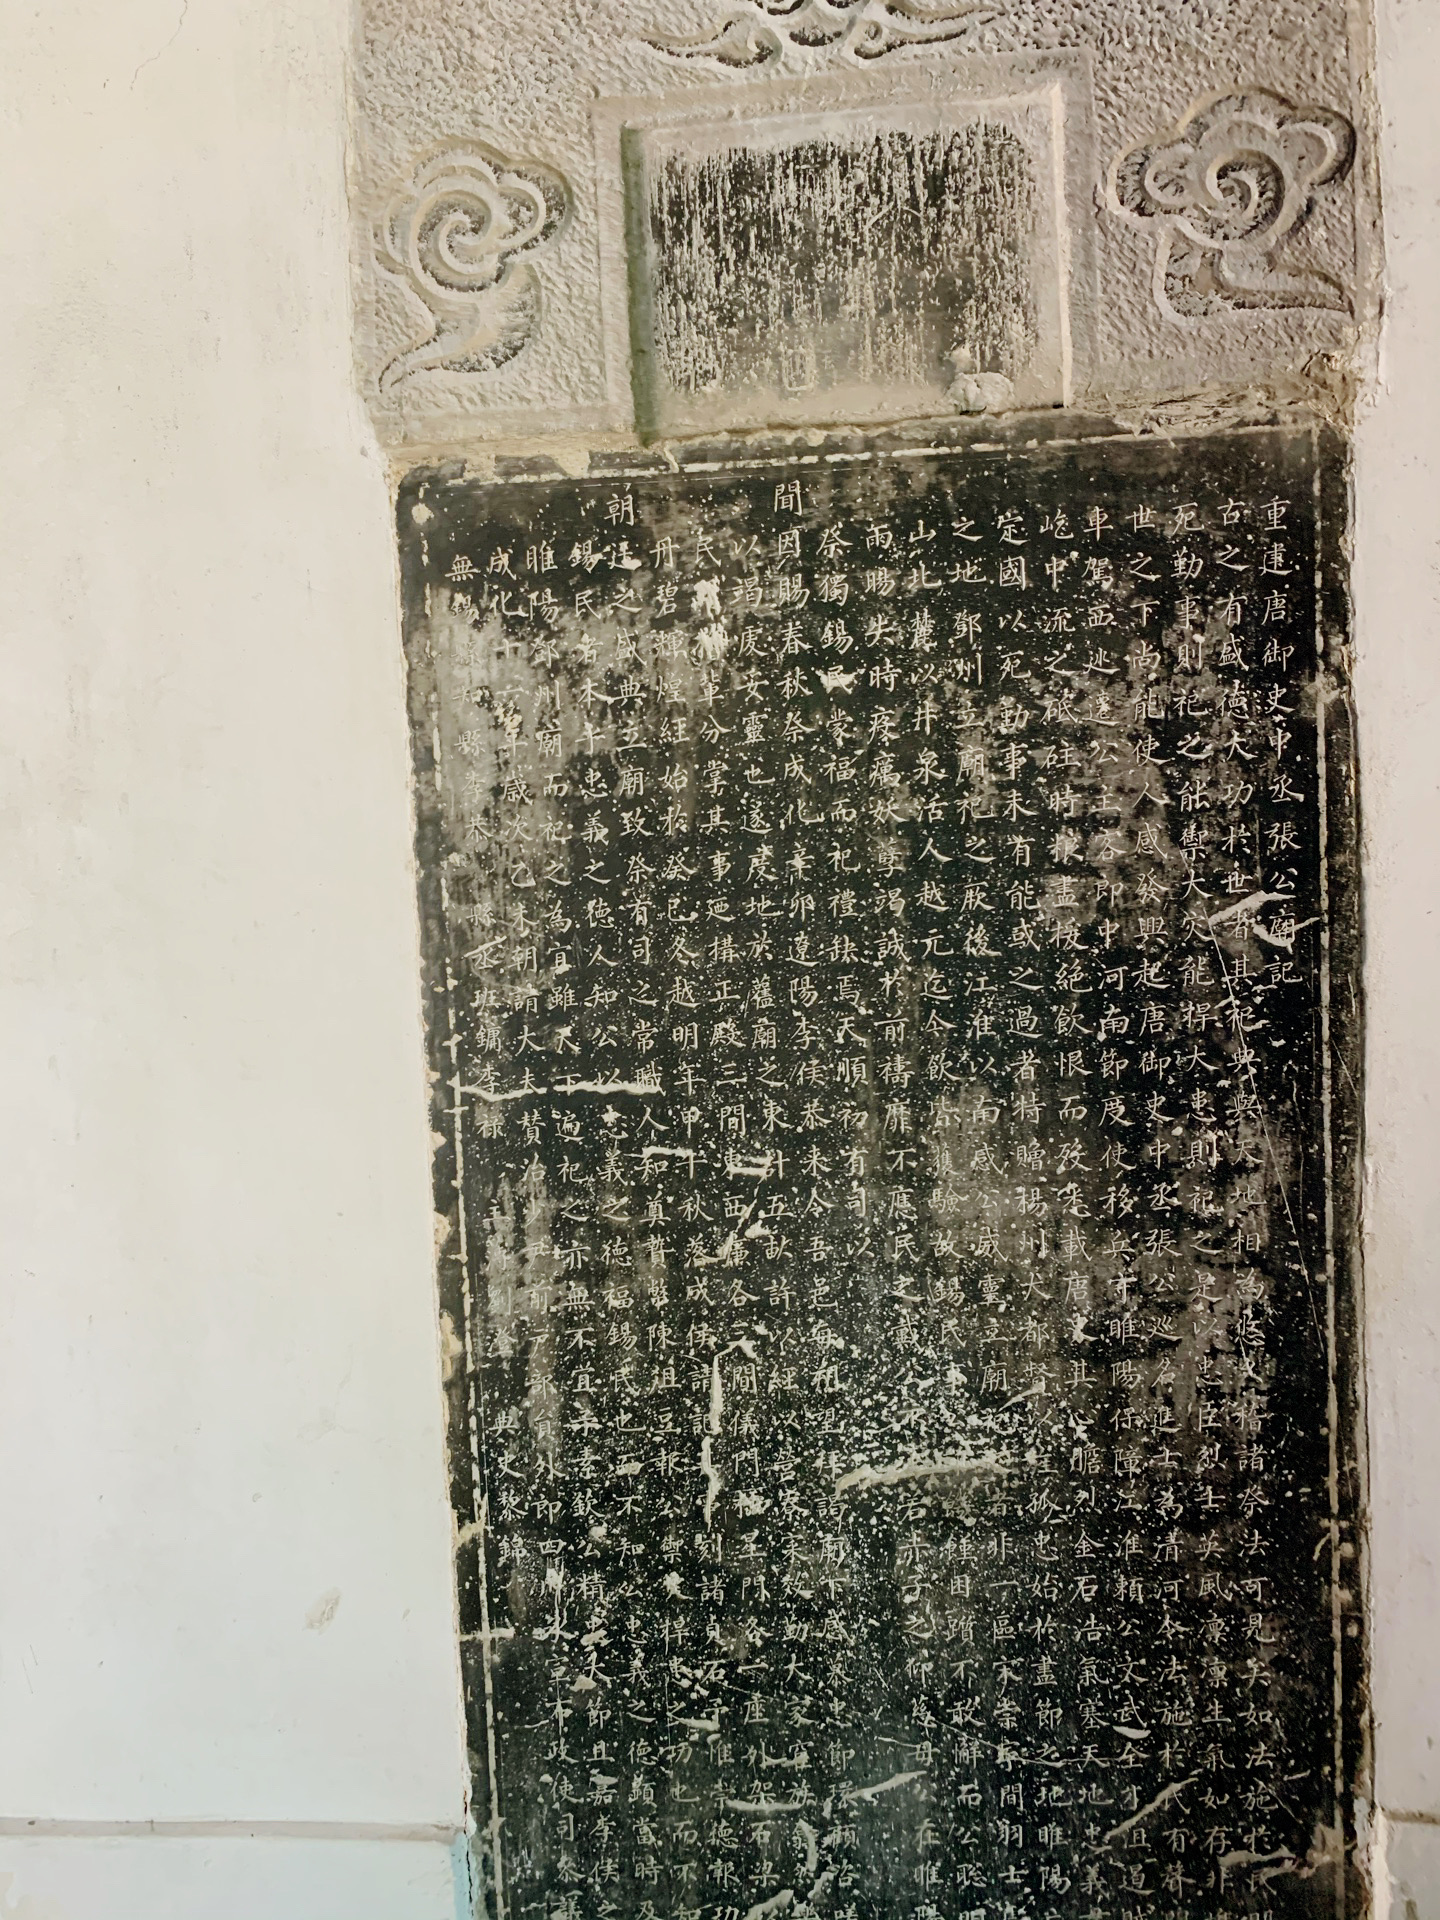 重建唐御史中丞張公廟記
古之有盛德大功於世者其祀典與天地相為悠久稽諸祭法可見矣如法施於民
死勤事則祀之能禦大灾能捍大患則祀之是以忠臣烈士英風凛凛生氣如存非
世之下尚能使人感發興起唐御史中丞張公巡名進士為清河令法施於民有聲
車駕西巡遷公主客即中河南節度使移兵守睢陽保障江淮頼公文武全才且道
屹中流之砥砫時粮盡援絕飲恨而歿悉載唐史其心膽列金石浩氣塞天地忠義
定國以死勤事未有能或之過者特贈揚州大都督以旌孤忠始於盡節之地睢陽
之地鄧州立廟祀之厥後江淮以南感公威靈立廟祀者非一區宋崇寧間羽士
山北麓以井泉活人越元迄今飲獲驗故錫民事鍾困躓不敢辭而公聡明
雨暘失時疫癘妖孽竭誠於前禱靡不應民之戴公不若赤子之仰慈母公在睢陽
祭獨錫民蒙福而祀禮缺焉天順初有司以
聞
因賜春秋祭成化辛卯遼陽李侯恭来令吾邑每相望拜謁廟下感慕忠節環顧咨嗟
以竭虔妥靈也遂度地於舊廟之東計五畝許以經以營寮寀效勤大家窒族翕然
民輩分掌其事廼構正殿三間東西廡各三間儀門櫺星門各一座外架石梁
丹碧輝煌經始於癸巳冬越明年甲午秋落成侯請記刻諸貞石予惟崇德報功
朝
廷之盛典立廟致祭有司之常職人知奠贄幣陳俎豆報公禦灾捍患之功也而不知
錫民者本乎忠義之德人知公以忠義之德福錫民也而不知公忠義之德顯當時及
睢陽鄧州廟而祀之為宜雖天下遍祀之亦無不宜予素欽公精忠大節且嘉李侯之
成化十六年歲次乙未朝請大夫贊治少尹前户部員外郎四川布政使司叅議
無錫縣知縣李恭 縣丞班鏞李祿 主簿劉 典史黎錦